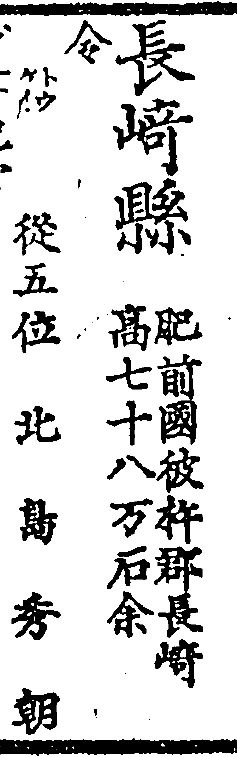 長﨑縣
肥前國彼杵郡長﨑
高七十八万石余
令
從五位 北島秀朝